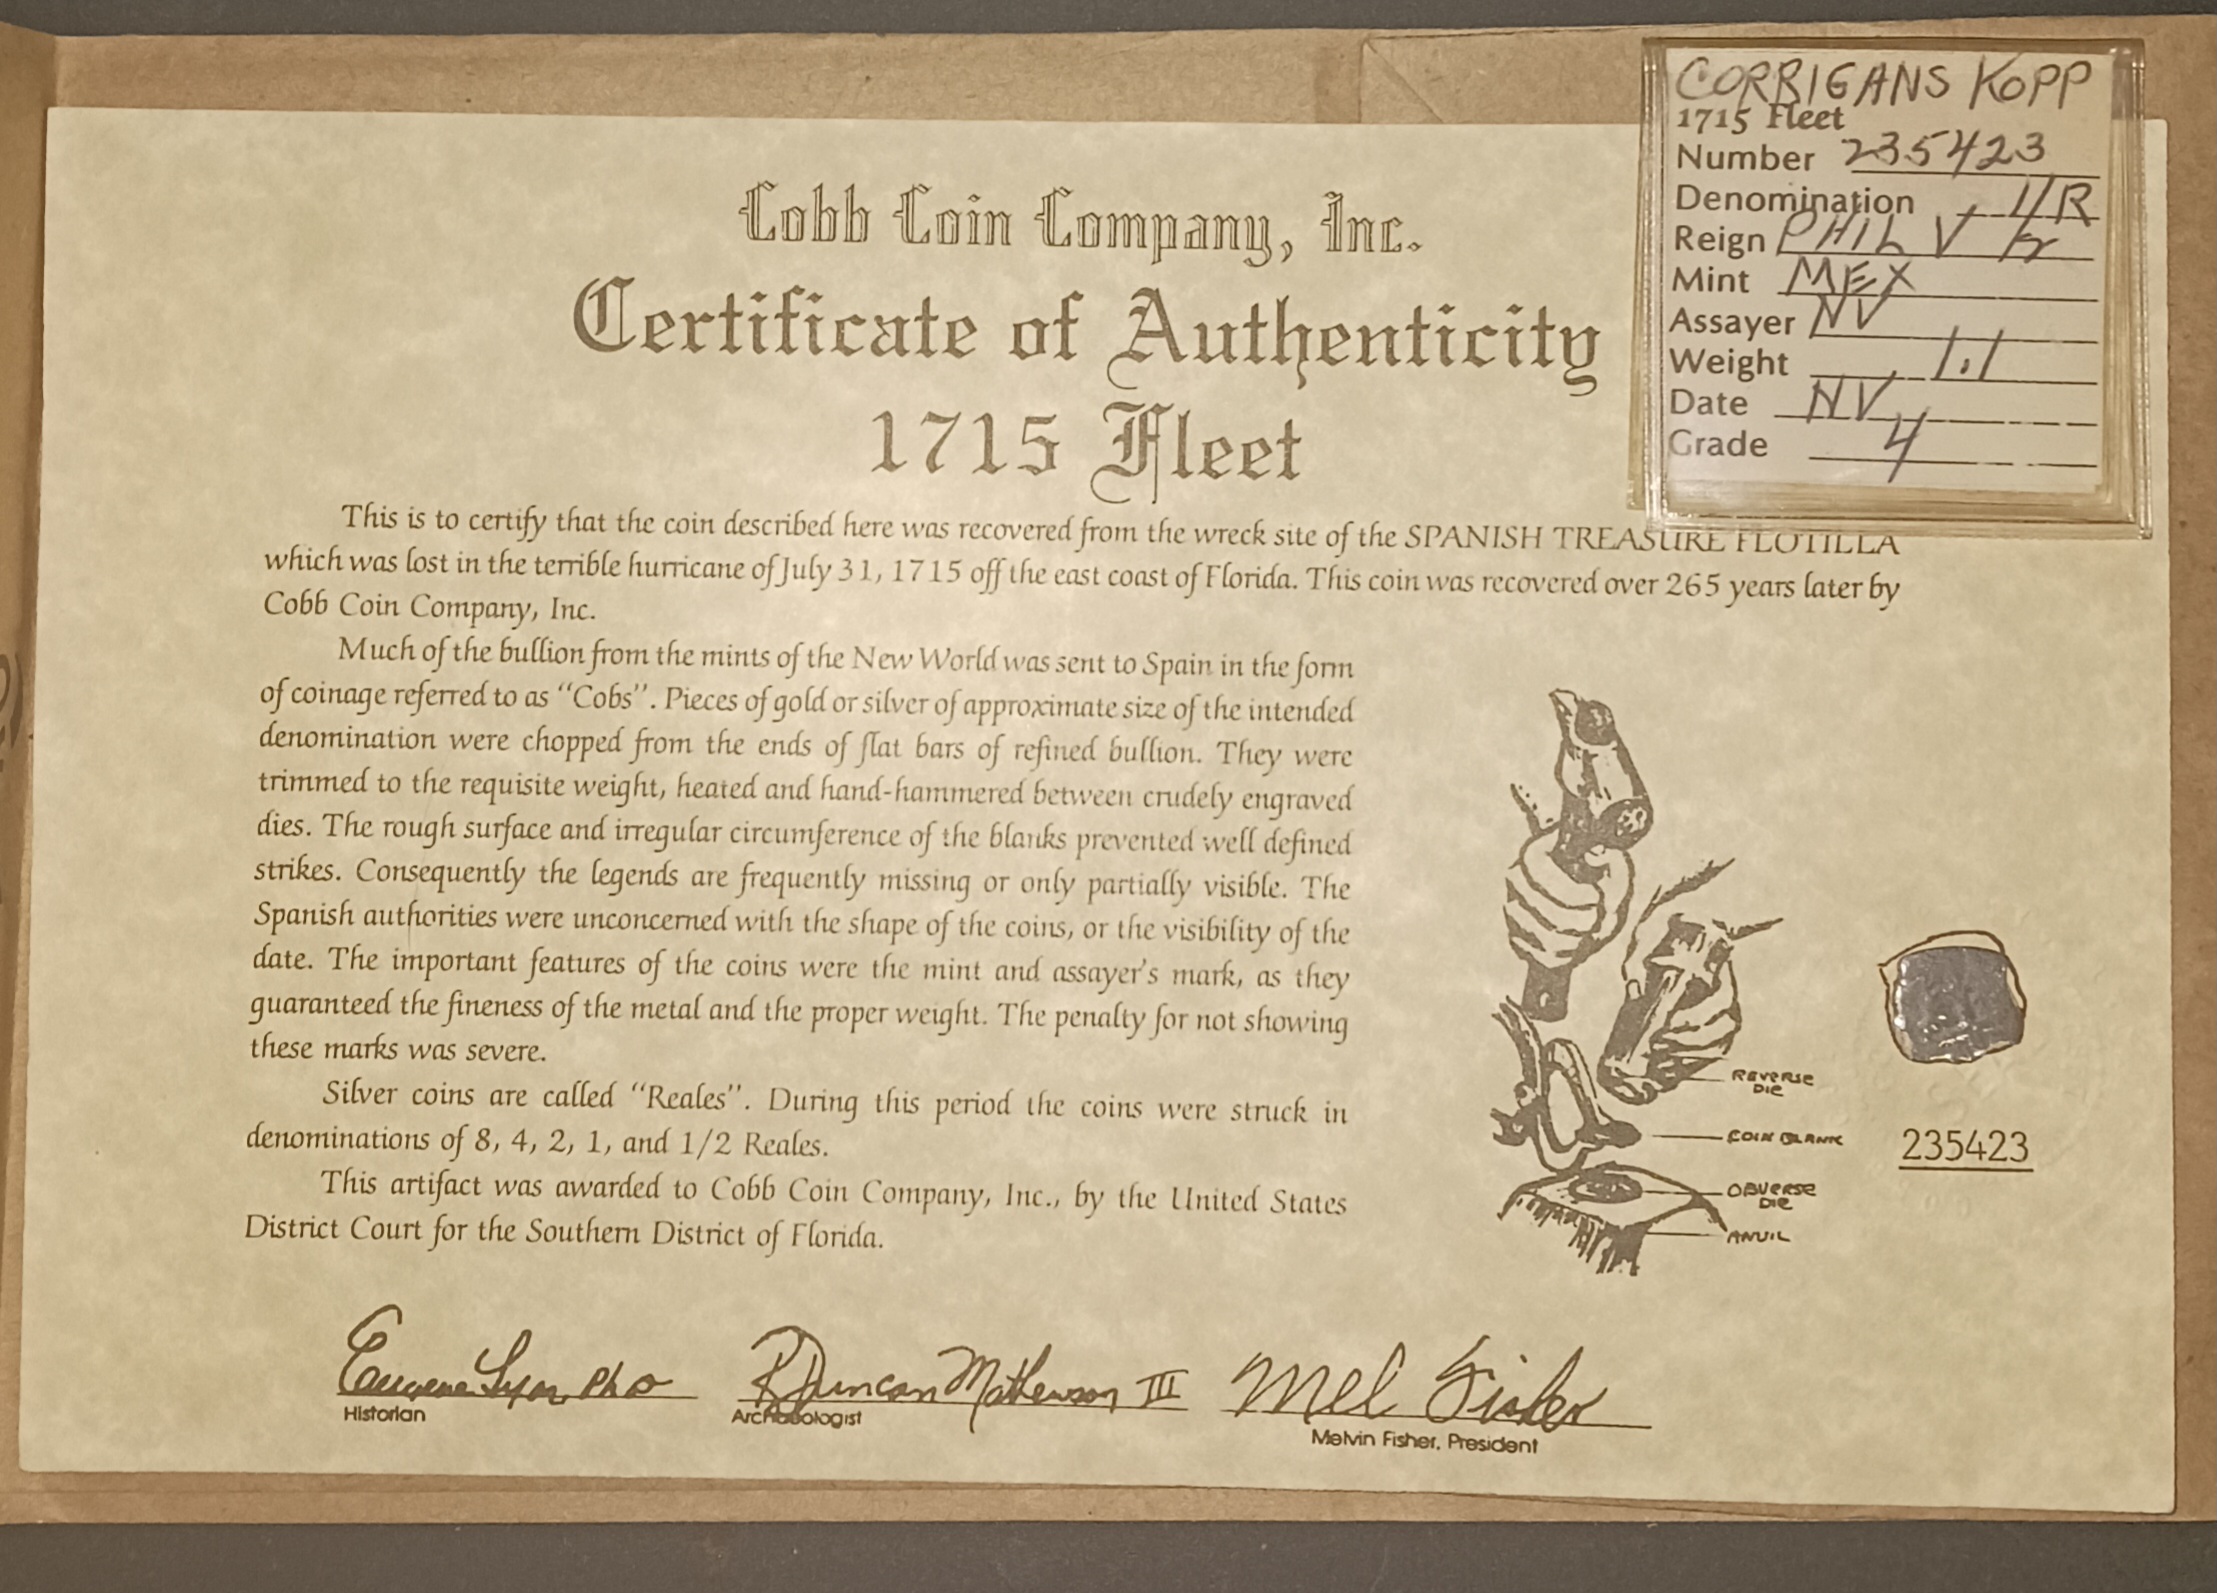 CORRIGANS KOPP
1715 Fleet
Number 235423
Denomination 1/R
Reign PHIL V
Mint MEX
Assayer NV
Weight 1.1
Date NV
Grade 4
Cobb Coin Company, Inc.
Certificate of Authenticity
1715 Fleet
This is to certify that the coin described here was recovered from the wreck site of the SPANISH TREASURE FLOTILLA
which was lost in the terrible hurricane of July 31, 1715 off the east coast of Florida. This coin was recovered over 265 years later by
Cobb Coin Company, Inc.
Much of the bullion from the mints of the New World was sent to Spain in the form
of coinage referred to as "Cobs". Pieces of gold or silver of approximate size of the intended
denomination were chopped from the ends of flat bars of refined bullion. They were
trimmed to the requisite weight, heated and hand-hammered between crudely engraved
dies. The rough surface and irregular circumference of the blanks prevented well defined
strikes. Consequently the legends are frequently missing or only partially visible. The
Spanish authorities were unconcerned with the shape of the coins, or the visibility of the
date. The important features of the coins were the mint and assayer's mark, as they
guaranteed the fineness of the metal and the proper weight. The penalty for not showing
these marks was severe.
Silver coins are called "Reales". During this period the coins were struck in
denominations of 8, 4, 2, 1, and 1/2 Reales.
This artifact was awarded to Cobb Coin Company, Inc., by the United States
District Court for the Southern District of Florida.
REVERSE
DIE
COIN BLANK
OBVERSE
DIE
ANVIL
235423
Eugene Lyon PhD
Historian
R Duncan Mathewson III
Archaeologist
Mel Fisher
Melvin Fisher, President